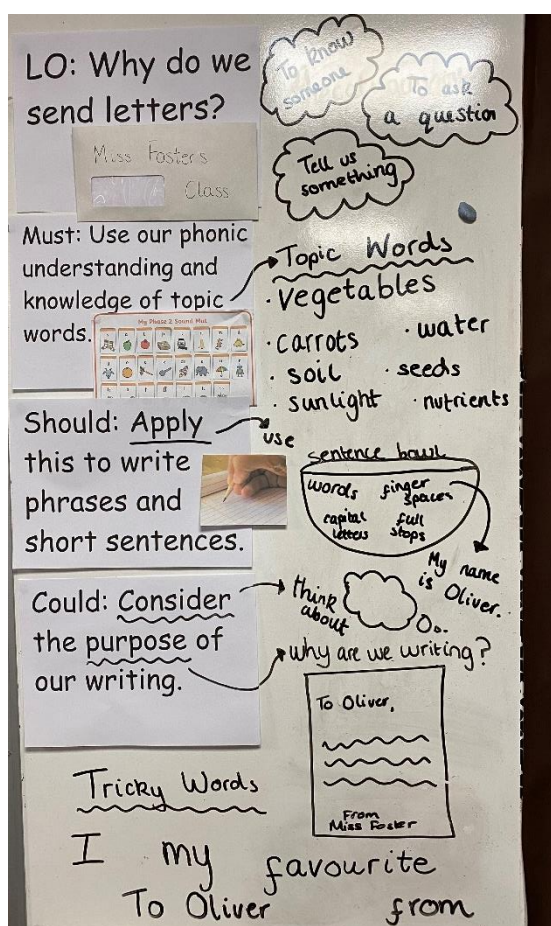 LO: Why do we
send letters?
Miss Fosters
Class
To know
someone
To ask
a question
Tell us
something
Must: Use our phonic
understanding and
knowledge of topic
words.
My Phase 2 Sound Mat
Topic Words
· vegetables
· carrots
· water
· soil
· seeds
· sunlight
· nutrients
Should: Apply
this to write
phrases and
short sentences.
use
sentence bowl
words
finger
spaces
capital
letters
full
stops
My name
is Oliver.
Could: Consider
the purpose of
our writing.
think
about
why are we writing?
To Oliver,
From
Miss Foster
Tricky Words
I my favourite
To Oliver from